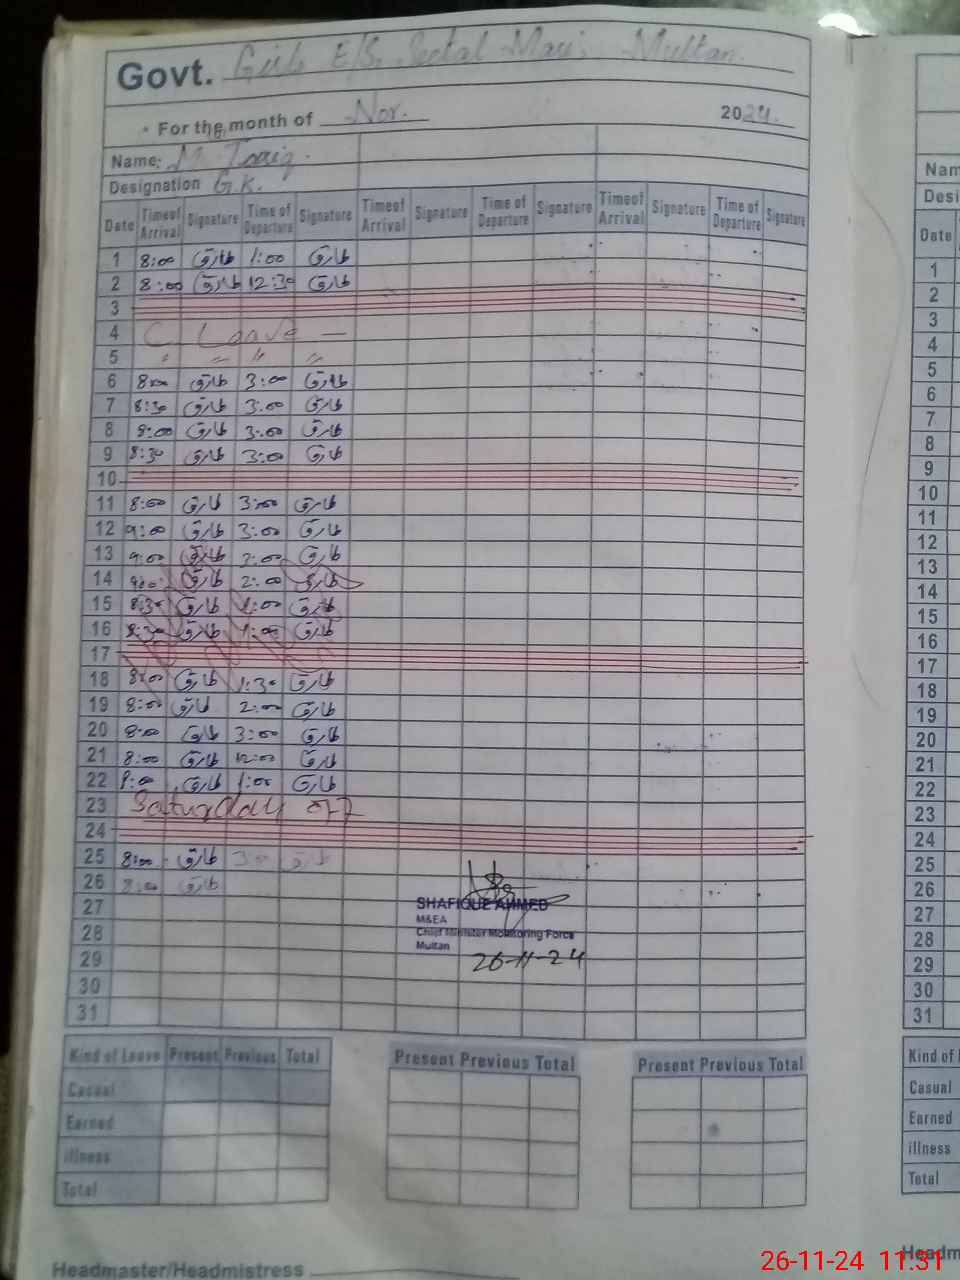 Govt. Girls E/S, Seetal Mari, Multan.
For the month of Nov. 2024.
Name: M. Tariq.
Designation G.K.
Date Time of Arrival Signature Time of Departure Signature Time of Arrival Signature Time of Departure Signature Time of Arrival Signature Time of Departure Signature
1 8:00 طارق 1:00 طارق
2 8:00 طارق 12:30 طارق
3
4 C. Leave —
5 " " " "
6 8:00 طارق 3:00 طارق
7 8:30 طارق 3:00 طارق
8 8:00 طارق 3:00 طارق
9 8:30 طارق 3:00 طارق
10
11 8:00 طارق 3:00 طارق
12 9:00 طارق 3:00 طارق
13 9:00 طارق 3:00 طارق
14 9:00 طارق 2:00 طارق
15 8:30 طارق 1:00 طارق
16 8:30 طارق 1:00 طارق
17
18 8:00 طارق 1:30 طارق
19 8:00 طارق 2:00 طارق
20 8:00 طارق 3:00 طارق
21 8:00 طارق 12:00 طارق
22 طارق 1:00 طارق
23 Saturday off
24
25 8:00 طارق 3:00 طارق
26 8:00 طارق
27
28
29
30
31
SHAFIQUE AHMED
M&EA
Chief Minister Monitoring Force
Multan
26-11-24
Kind of Leave Present Previous Total Present Previous Total Present Previous Total
Casual
Earned
illness
Total
Headmaster/Headmistress
Date
1
2
3
4
5
6
7
8
9
10
11
12
13
14
15
16
17
18
19
20
21
22
23
24
25
26
27
28
29
30
31
Kind of
Casual
Earned
illness
Total
26-11-24 11:31